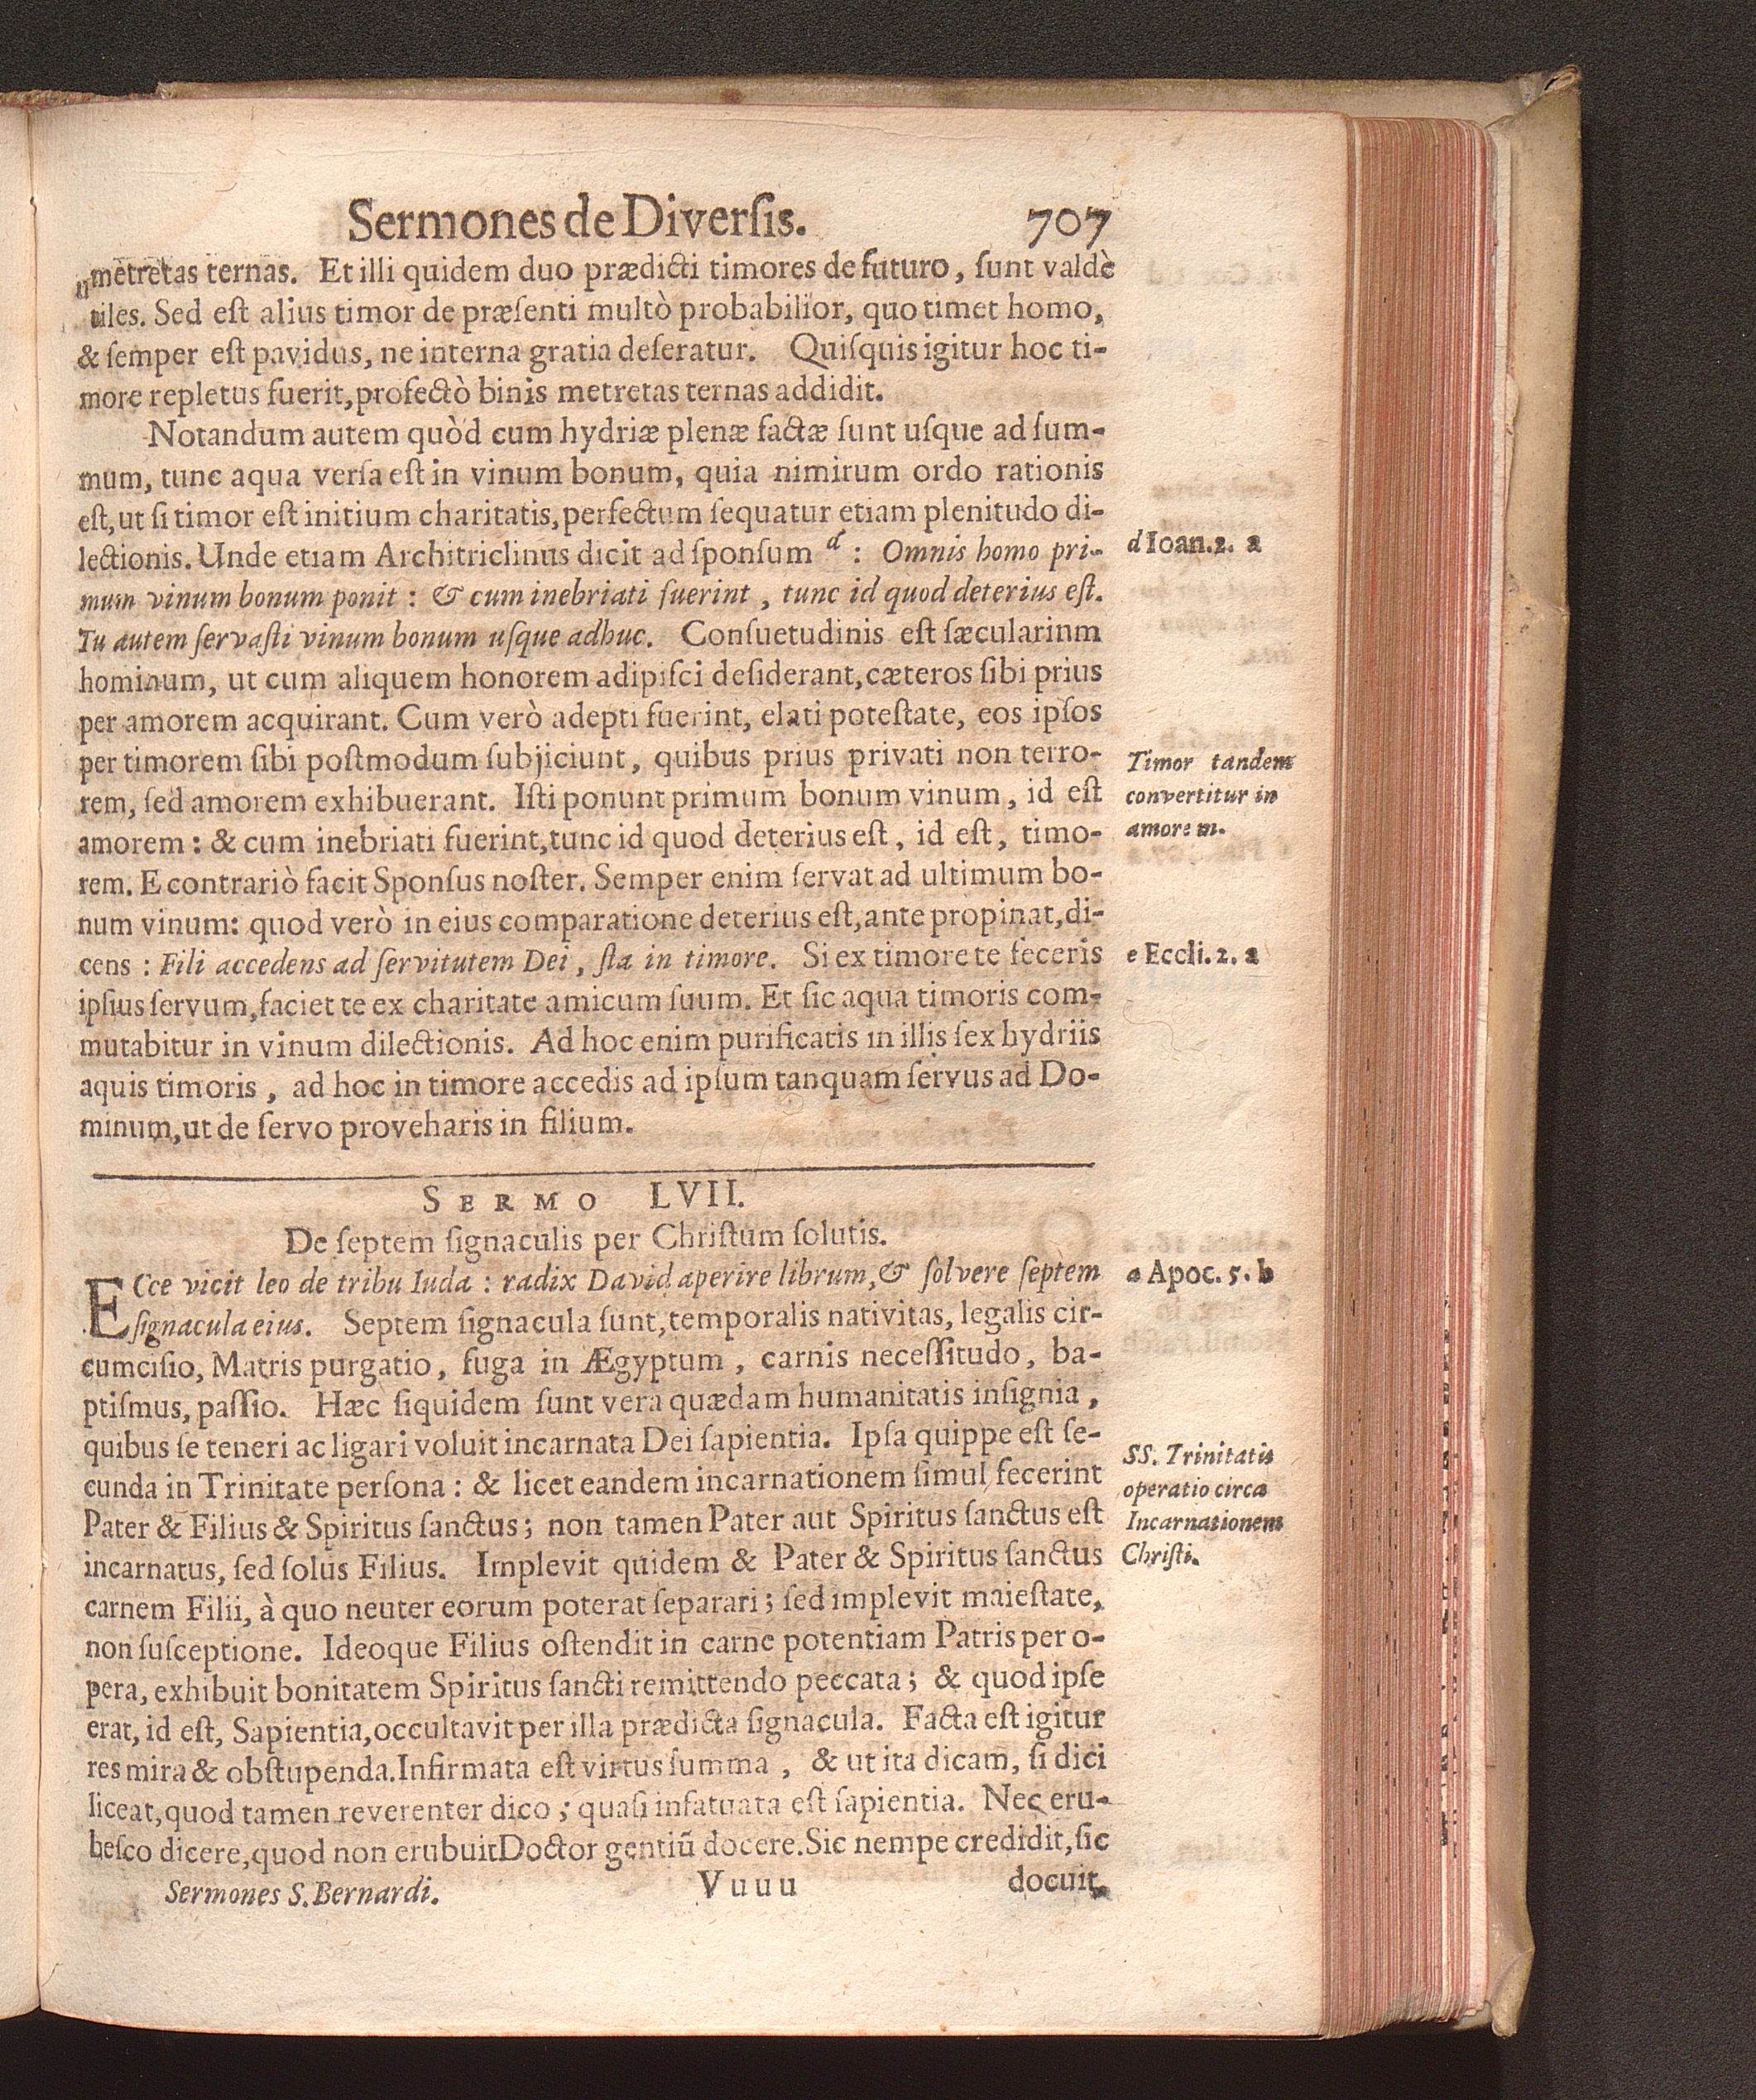 Sermones de Diverſis. 707
metretas ternas. Et illi quidem duo prædicti timores de futuro, ſunt valdè
utiles. Sed eſt alius timor de præſenti multò probabilior, quo timet homo,
& ſemper eſt pavidus, ne interna gratia deſeratur. Quiſquis igitur hoc ti-
more repletus fuerit, profectò binis metretas ternas addidit.
Notandum autem quòd cum hydriæ plenæ factæ ſunt uſque ad ſum-
mum, tunc aqua verſa eſt in vinum bonum, quia nimirum ordo rationis
eſt, ut ſi timor eſt initium charitatis, perfectum ſequatur etiam plenitudo di-
lectionis. Unde etiam Architriclinus dicit ad ſponſum d : Omnis homo pri-
mum vinum bonum ponit : & cum inebriati fuerint, tunc id quod deterius eſt.
Tu autem ſervaſti vinum bonum uſque adhuc. Conſuetudinis eſt ſæcularinm
hominum, ut cum aliquem honorem adipiſci deſiderant, cæteros ſibi prius
per amorem acquirant. Cum verò adepti fuerint, elati poteſtate, eos ipſos
per timorem ſibi poſtmodum ſubjiciunt, quibus prius privati non terro-
rem, ſed amorem exhibuerant. Iſti ponunt primum bonum vinum, id eſt
amorem : & cum inebriati fuerint, tunc id quod deterius eſt, id eſt, timo-
rem. E contrariò facit Sponſus noſter. Semper enim ſervat ad ultimum bo-
num vinum: quod verò in eius comparatione deterius eſt, ante propinat, di-
cens : Fili accedens ad ſervitutem Dei, ſta in timore. Si ex timore te feceris
ipſius ſervum, faciet te ex charitate amicum ſuum. Et ſic aqua timoris com-
mutabitur in vinum dilectionis. Ad hoc enim purificatis in illis ſex hydriis
aquis timoris, ad hoc in timore accedis ad ipſum tanquam ſervus ad Do-
minum, ut de ſervo proveharis in filium.
d Ioan. 2. a
Timor tandem
convertitur in
amorem.
e Eccli. 2. a
SERMO LVII.
De ſeptem ſignaculis per Chriſtum ſolutis.
ECce vicit leo de tribu Iuda : radix David aperire librum, & ſolvere ſeptem
ſignacula eius. Septem ſignacula ſunt, temporalis nativitas, legalis cir-
cumciſio, Matris purgatio, fuga in Ægyptum, carnis neceſſitudo, ba-
ptiſmus, paſſio. Hæc ſiquidem ſunt vera quædam humanitatis inſignia,
quibus ſe teneri ac ligari voluit incarnata Dei ſapientia. Ipſa quippe eſt ſe-
cunda in Trinitate perſona : & licet eandem incarnationem ſimul fecerint
Pater & Filius & Spiritus ſanctus; non tamen Pater aut Spiritus ſanctus eſt
incarnatus, ſed ſolus Filius. Implevit quidem & Pater & Spiritus ſanctus
carnem Filii, à quo neuter eorum poterat ſeparari; ſed implevit maieſtate,
non ſuſceptione. Ideoque Filius oſtendit in carne potentiam Patris per o-
pera, exhibuit bonitatem Spiritus ſancti remittendo peccata; & quod ipſe
erat, id eſt, Sapientia, occultavit per illa prædicta ſignacula. Facta eſt igitur
res mira & obſtupenda. Infirmata eſt virtus ſumma, & ut ita dicam, ſi dici
liceat, quod tamen reverenter dico; quaſi infatuata eſt ſapientia. Nec eru-
beſco dicere, quod non erubuit Doctor gentiũ docere. Sic nempe credidit, ſic
a Apoc. 5. b
SS. Trinitatis
operatio circa
Incarnationem
Chriſti.
Sermones S. Bernardi. Vuuu docuit.